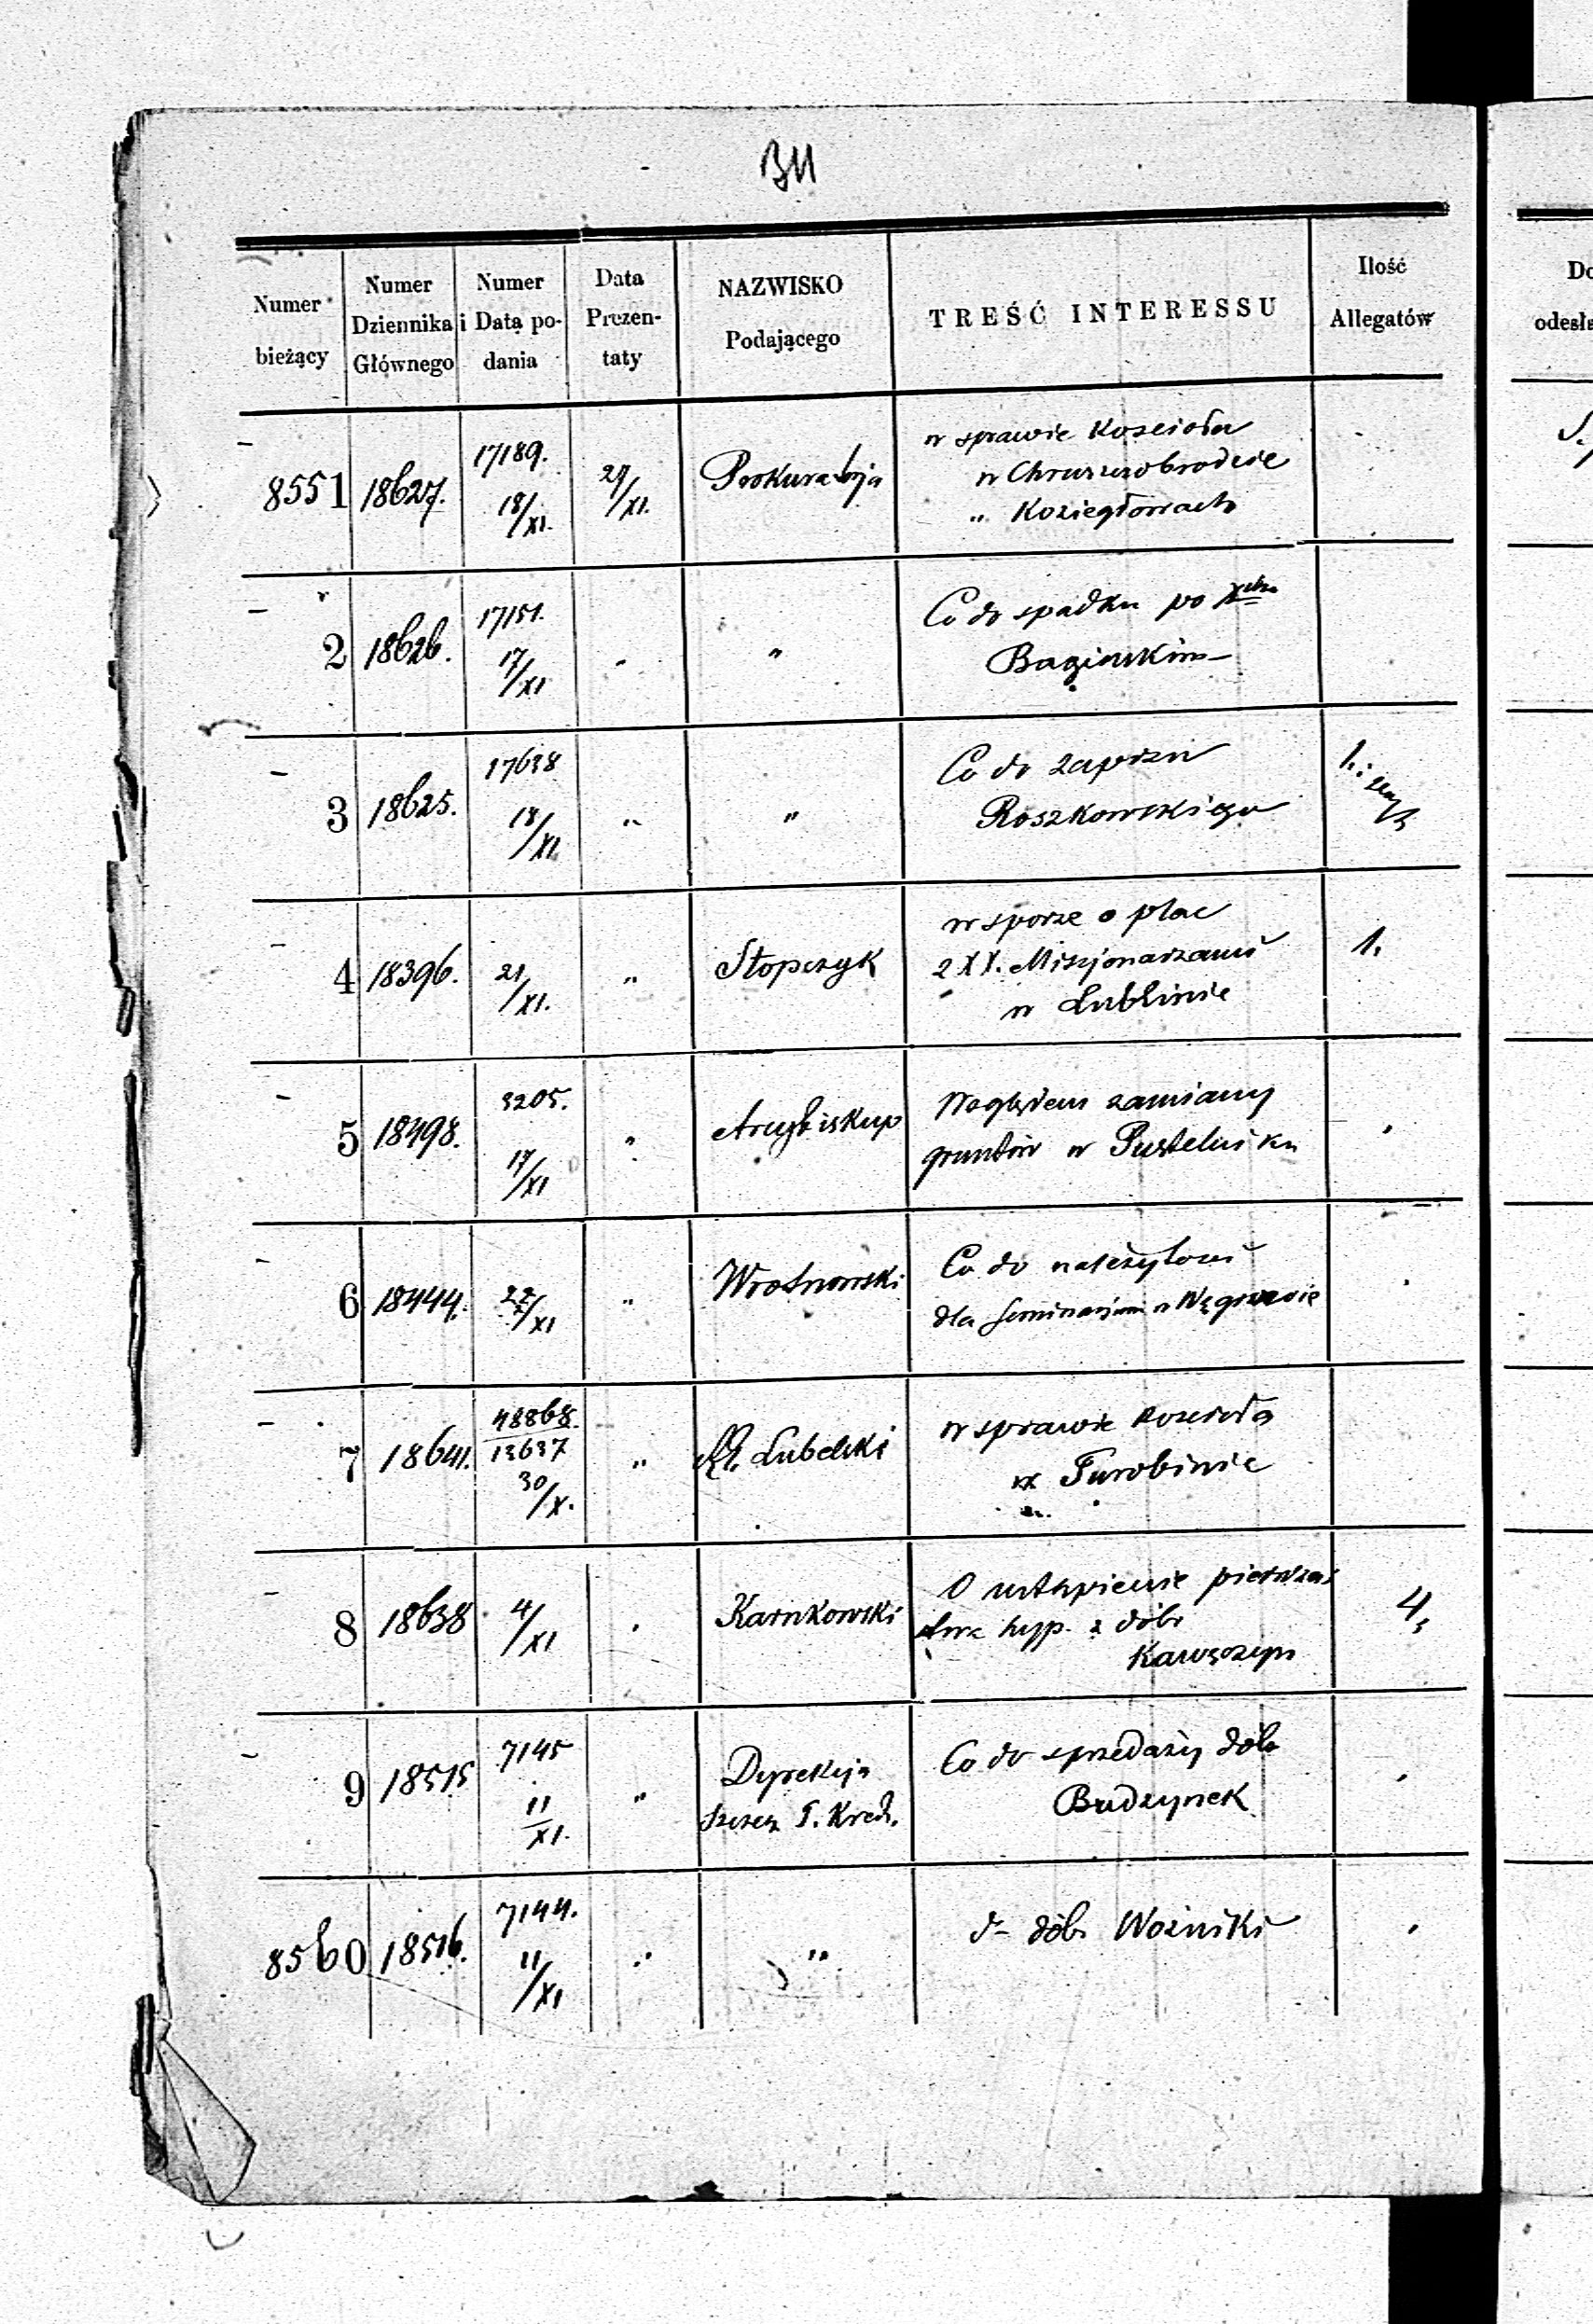 Numer bieżący
Numer Dziennika Głównego
Numer i Data podania
Data Prezentaty
NAZWISKO Podającego
TREŚĆ INTERESSU
Ilość Allegatów
8551 18627. 17189. 18/XI. Prokuratorja
w sprawie Kościoła
w Chruszczobrodzie
„ Koziegłowach
2 18626. 17151. 17/XI „
Co do spadku po
Bagińskim
3 18625. 17638 18/XI. „ „
Co do zapisu
Roszkowskiego
4 18396. 21/XI. „ Stopczyk
w sporze o plac
z XX. Misjonarzami
w Lublinie
1.
5 18498. 3205. 17/XI „ Arcybiskup
Względem zamiany
gruntów w Pustelniku
6 18444. 22/XI „ Wrotnowski
Co do należytości
dla Seminarjum w Węgrowie
7 18641. 48868. 13637 30/X. „ Lubelski
w sprawie Kościoła
w Turobinie
8 18638 4/XI Karnkowski
O ustąpienie pierwszeń
stwa hyp. z dóbr
Kawęczyn
4
9 18515 7145 11/XI. „ Dyrekcja
Szczeg. T. Kred.
Co do sprzedaży dóbr
Budzynek
8560 18516. 7144. 11/XI „ „
dóbr Woźniki
Do
odesła